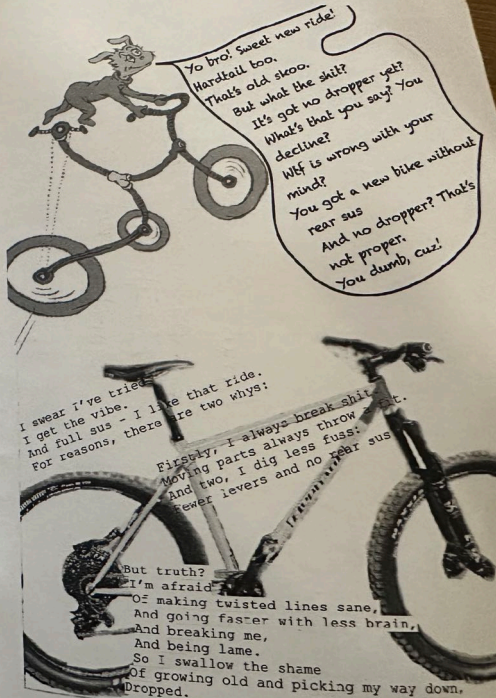 Yo bro! Sweet new ride!
Hardtail too.
That's old skoo.
But what the shit?
It's got no dropper yet?
What's that you say? You
decline?
Wtf is wrong with your
mind?
You got a new bike without
rear sus
And no dropper? That's
not proper.
You dumb, cuz!
I swear i've tried
I get the vibe.
And full sus - I like that ride.
For reasons, there are two whys:
Firstly, I always break shit
Moving parts always throw a fit.
And two, I dig less fuss:
Fewer levers and no rear sus
But truth?
I'm afraid
Of making twisted lines sane,
And going faster with less brain,
And breaking me,
And being lame.
So I swallow the shame
Of growing old and picking my way down,
Dropped.